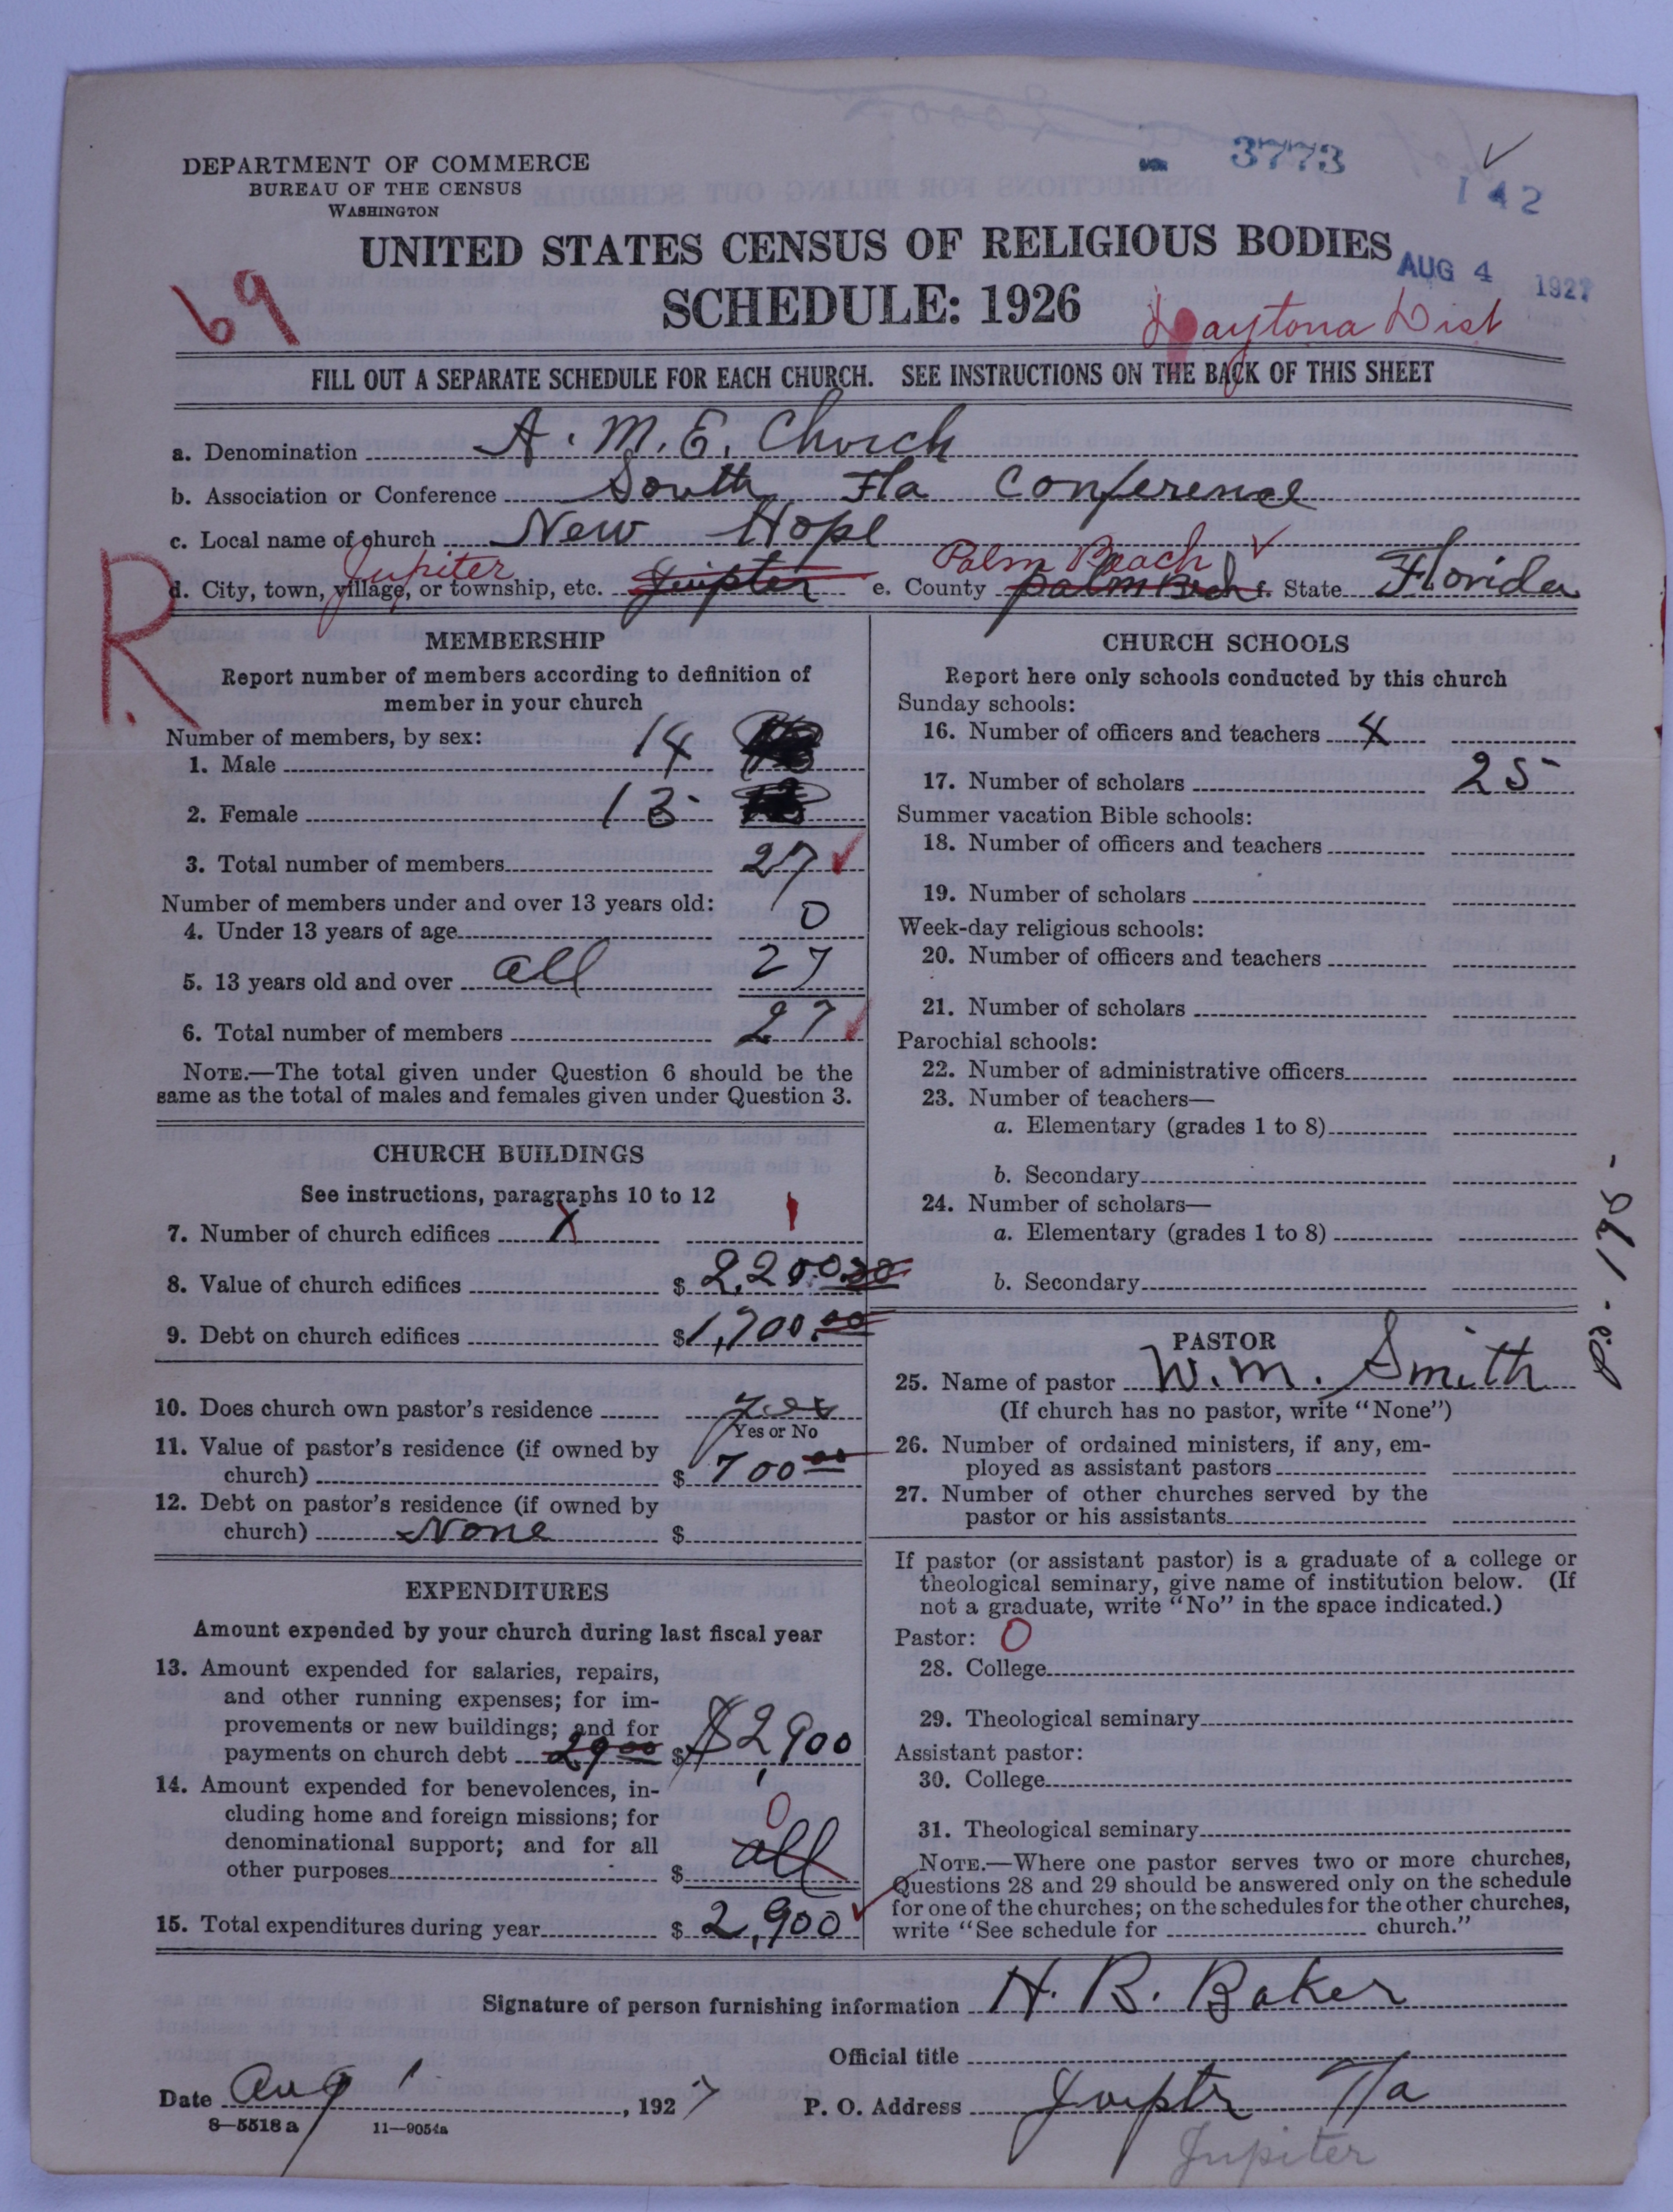 3773
142
DEPARTMENT OF COMMERCE
BUREAU OF THE CENSUS
WASHINGTON
UNITED STATES CENSUS OF RELIGIOUS BODIES
AUG 4 1927
69
SCHEDULE: 1926
Daytona Dist
FILL OUT A SEPARATE SCHEDULE FOR EACH CHURCH. SEE INSTRUCTIONS ON THE BACK OF THIS SHEET
a. Denomination A. M. E. Church
b. Association or Conference South Fla Conference
c. Local name of church New Hope
Jupiter Palm Beach
d. City, town, village, or township, etc. Juipter e. County palm Bech f. State Florida
R.
MEMBERSHIP
Report number of members according to definition of
member in your church
Number of members, by sex:
1. Male 14
2. Female 13
3. Total number of members 27
Number of members under and over 13 years old:
4. Under 13 years of age 0
5. 13 years old and over all 27
6. Total number of members 27
NOTE.—The total given under Question 6 should be the
same as the total of males and females given under Question 3.
CHURCH BUILDINGS
See instructions, paragraphs 10 to 12
7. Number of church edifices X 1
8. Value of church edifices $ 2,200.00
9. Debt on church edifices $ 1,700.00
10. Does church own pastor's residence yes
Yes or No
11. Value of pastor's residence (if owned by
church) $ 700 00
12. Debt on pastor's residence (if owned by
church) None $
EXPENDITURES
Amount expended by your church during last fiscal year
13. Amount expended for salaries, repairs,
and other running expenses; for im-
provements or new buildings; and for
payments on church debt 29 00 $ $2,900
14. Amount expended for benevolences, in-
cluding home and foreign missions; for
denominational support; and for all
other purposes $ all 0
15. Total expenditures during year $ 2,900
CHURCH SCHOOLS
Report here only schools conducted by this church
Sunday schools:
16. Number of officers and teachers 4
17. Number of scholars 25
Summer vacation Bible schools:
18. Number of officers and teachers
19. Number of scholars
Week-day religious schools:
20. Number of officers and teachers
21. Number of scholars
Parochial schools:
22. Number of administrative officers
23. Number of teachers—
a. Elementary (grades 1 to 8)
b. Secondary
24. Number of scholars—
a. Elementary (grades 1 to 8)
b. Secondary
PASTOR
25. Name of pastor W. M. Smith
(If church has no pastor, write "None")
26. Number of ordained ministers, if any, em-
ployed as assistant pastors
27. Number of other churches served by the
pastor or his assistants
If pastor (or assistant pastor) is a graduate of a college or
theological seminary, give name of institution below. (If
not a graduate, write "No" in the space indicated.)
Pastor: 0
28. College
29. Theological seminary
Assistant pastor:
30. College
31. Theological seminary
NOTE.—Where one pastor serves two or more churches,
Questions 28 and 29 should be answered only on the schedule
for one of the churches; on the schedules for the other churches,
write "See schedule for church."
Signature of person furnishing information H. B. Baker
Official title
Date Aug 1, 1927 P. O. Address Juiptr Fla
8—5518 a 11—9054a
Jupiter